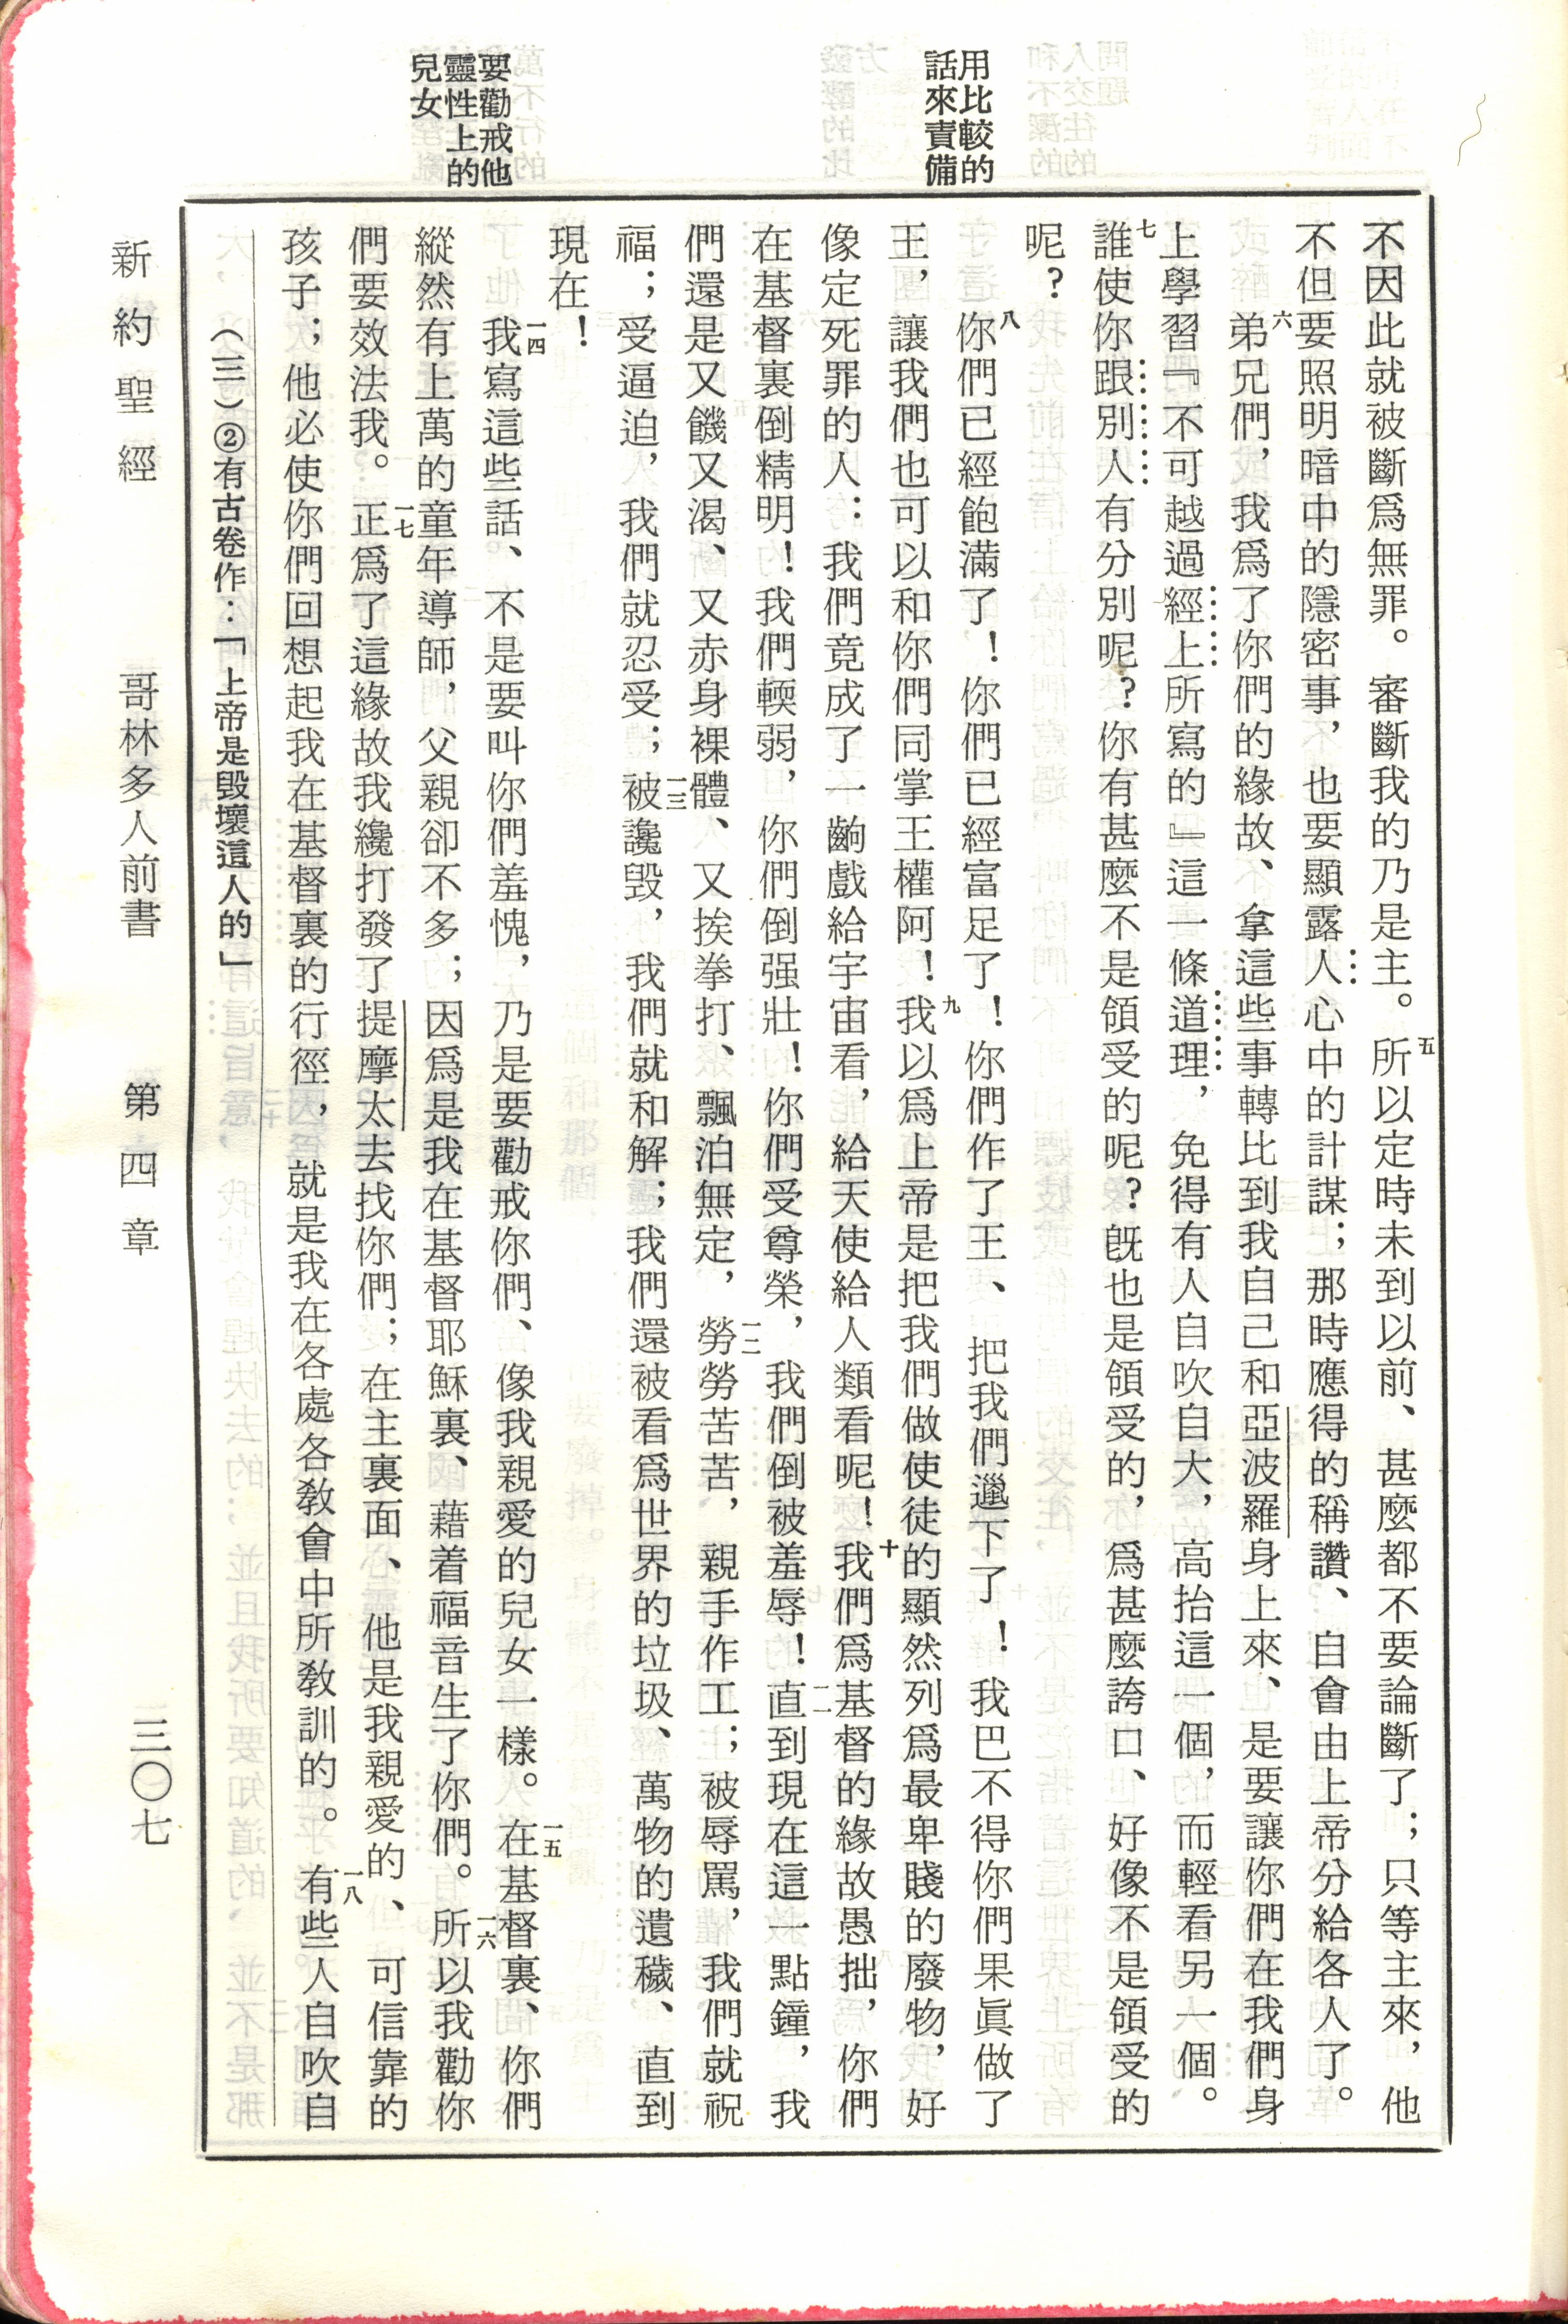 用比較的
話來責備
要勸戒他
靈性上的
兒女
不因此就被斷爲無罪。審斷我的乃是主。五所以定時未到以前、甚麼都不要論斷了；只等主來，他
不但要照明暗中的隱密事，也要顯露人心中的計謀；那時應得的稱讚、自會由上帝分給各人了。
六弟兄們，我爲了你們的緣故、拿這些事轉比到我自己和亞波羅身上來、是要讓你們在我們身
上學習『不可越過經上所寫的』這一條道理，免得有人自吹自大，高抬這一個，而輕看另一個。
七誰使你跟別人有分別呢？你有甚麼不是領受的呢？旣也是領受的，爲甚麼誇口、好像不是領受的
呢？
八你們已經飽滿了！你們已經富足了！你們作了王、把我們邋下了！我巴不得你們果眞做了
王，讓我們也可以和你們同掌王權阿！九我以爲上帝是把我們做使徒的顯然列爲最卑賤的廢物，好
像定死罪的人：我們竟成了一齣戲給宇宙看，給天使給人類看呢！十我們爲基督的緣故愚拙，你們
在基督裏倒精明！我們輭弱，你們倒强壯！你們受尊榮，我們倒被羞辱！一一直到現在這一點鐘，我
們還是又饑又渴、又赤身裸體、又挨拳打、飄泊無定，一二勞勞苦苦，親手作工；被辱罵，我們就祝
福；受逼迫，我們就忍受；一三被讒毀，我們就和解；我們還被看爲世界的垃圾、萬物的遺穢、直到
現在！
一四我寫這些話、不是要叫你們羞愧，乃是要勸戒你們、像我親愛的兒女一樣。一五在基督裏、你們
縱然有上萬的童年導師，父親卻不多；因爲是我在基督耶穌裏、藉着福音生了你們。一六所以我勸你
們要效法我。一七正爲了這緣故我纔打發了提摩太去找你們；在主裏面、他是我親愛的、可信靠的
孩子；他必使你們回想起我在基督裏的行徑，就是我在各處各教會中所教訓的。一八有些人自吹自
（三）②有古卷作：「上帝是毀壞這人的」
新約聖經　哥林多人前書　第四章　三〇七